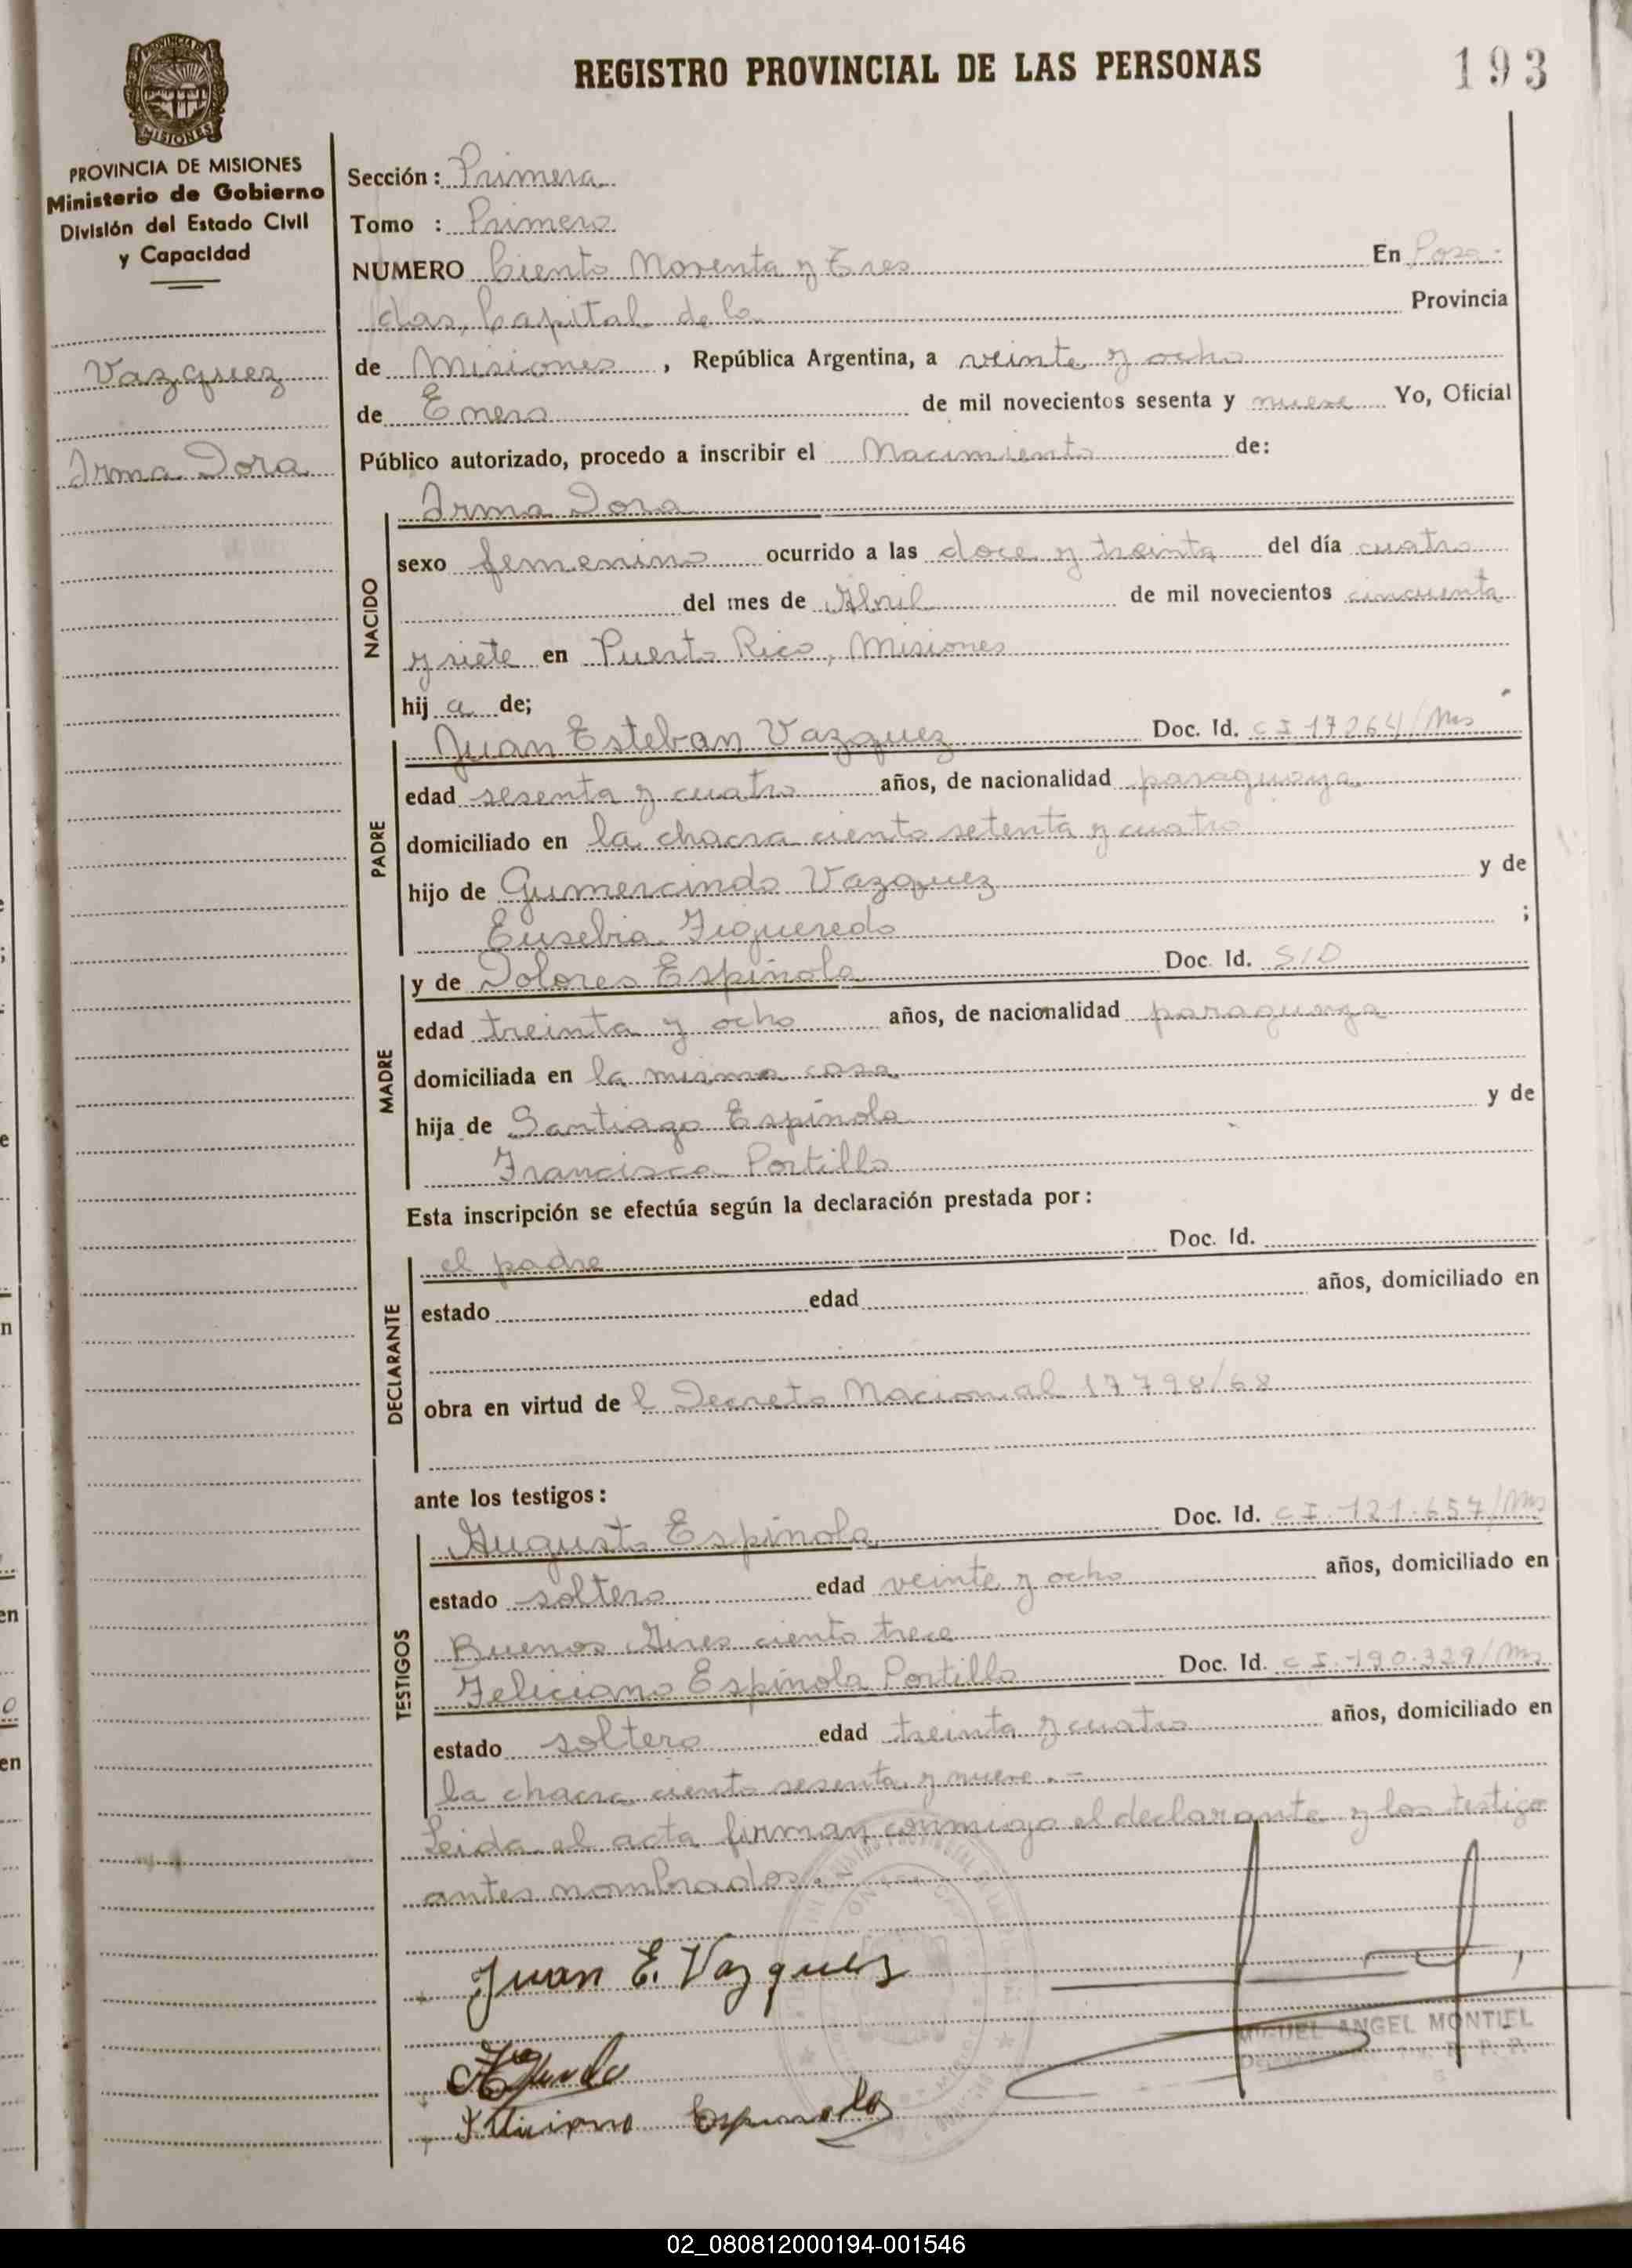 REGISTRO PROVINCIAL DE LAS PERSONAS
193
PROVINCIA DE MISIONES
Ministerio de Gobierno
División del Estado Civil
y Capacidad
Vazquez
Irma Dora
Sección: Primera
Tomo : Primero
NUMERO Ciento Noventa y Tres En Posa-
das, Capital de la Provincia
de Misiones, República Argentina, a veinte y ocho
de Enero de mil novecientos sesenta y nueve Yo, Oficial
Público autorizado, procedo a inscribir el Nacimiento de:
NACIDO
Irma Dora
sexo femenino ocurrido a las doce y treinta del día cuatro
del mes de Abril de mil novecientos cincuenta
y siete en Puerto Rico, Misiones
hij a de;
PADRE
Juan Esteban Vazquez Doc. Id. C I 17264/Mns
edad sesenta y cuatro años, de nacionalidad paraguaya
domiciliado en la chacra ciento setenta y cuatro
hijo de Gumercindo Vazquez y de
Eusebia Figueredo ;
MADRE
y de Dolores Espínola Doc. Id. S/D
edad treinta y ocho años, de nacionalidad paraguaya
domiciliada en la misma casa
hija de Santiago Espínola y de
Francisca Portillo
Esta inscripción se efectúa según la declaración prestada por:
DECLARANTE
el padre Doc. Id.
estado edad años, domiciliado en
obra en virtud de l Decreto Nacional 17798/68
ante los testigos:
TESTIGOS
Augusto Espínola Doc. Id. C I. 121.657/Mns
estado soltero edad veinte y ocho años, domiciliado en
Buenos Aires ciento trece
Feliciano Espínola Portillo Doc. Id. C I. 190.329/Mns
estado soltero edad treinta y cuatro años, domiciliado en
la chacra ciento sesenta y nueve.-
Leida el acta firman conmigo el declarante y los testigo
antes nombrados.
Juan E. Vazquez
MIGUEL ANGEL MONTIEL
Espinola
02_080812000194-001546